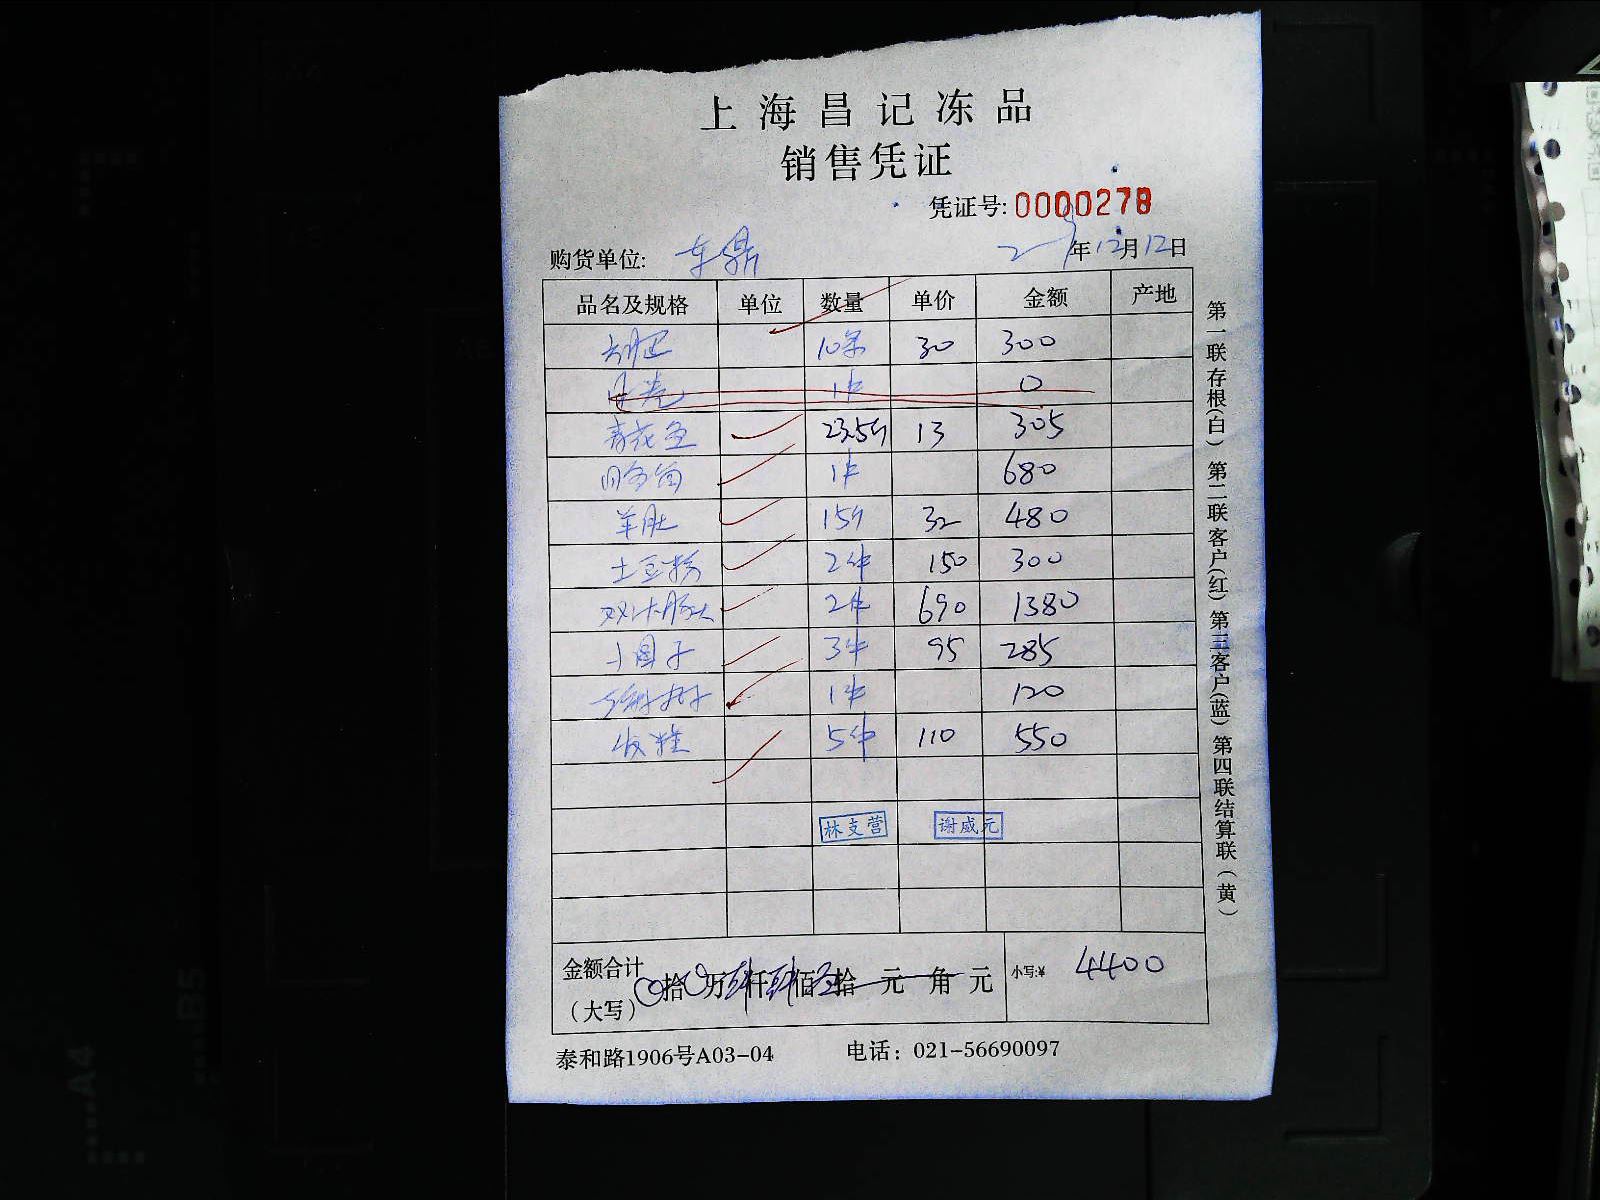 上海昌记冻品
销售凭证
凭证号:0000278
购货单位: 车鼎 年12月12日
品名及规格 单位 数量 单价 金额 产地
10条 30 300
1件 0
青花鱼 23.5斤 13 305
1件 680
羊肚 15斤 32 480
土豆粉 2件 150 300
2件 690 1380
小圆子 3件 95 285
1件 120
5件 110 550
林支营 谢威元
金额合计 拾 万 仟 佰 拾 元 角 元 小写:¥ 4400
(大写)
泰和路1906号A03-04 电话: 021-56690097
第一联存根(白) 第二联客户(红) 第三客户(蓝) 第四联结算联(黄)
A4
B5